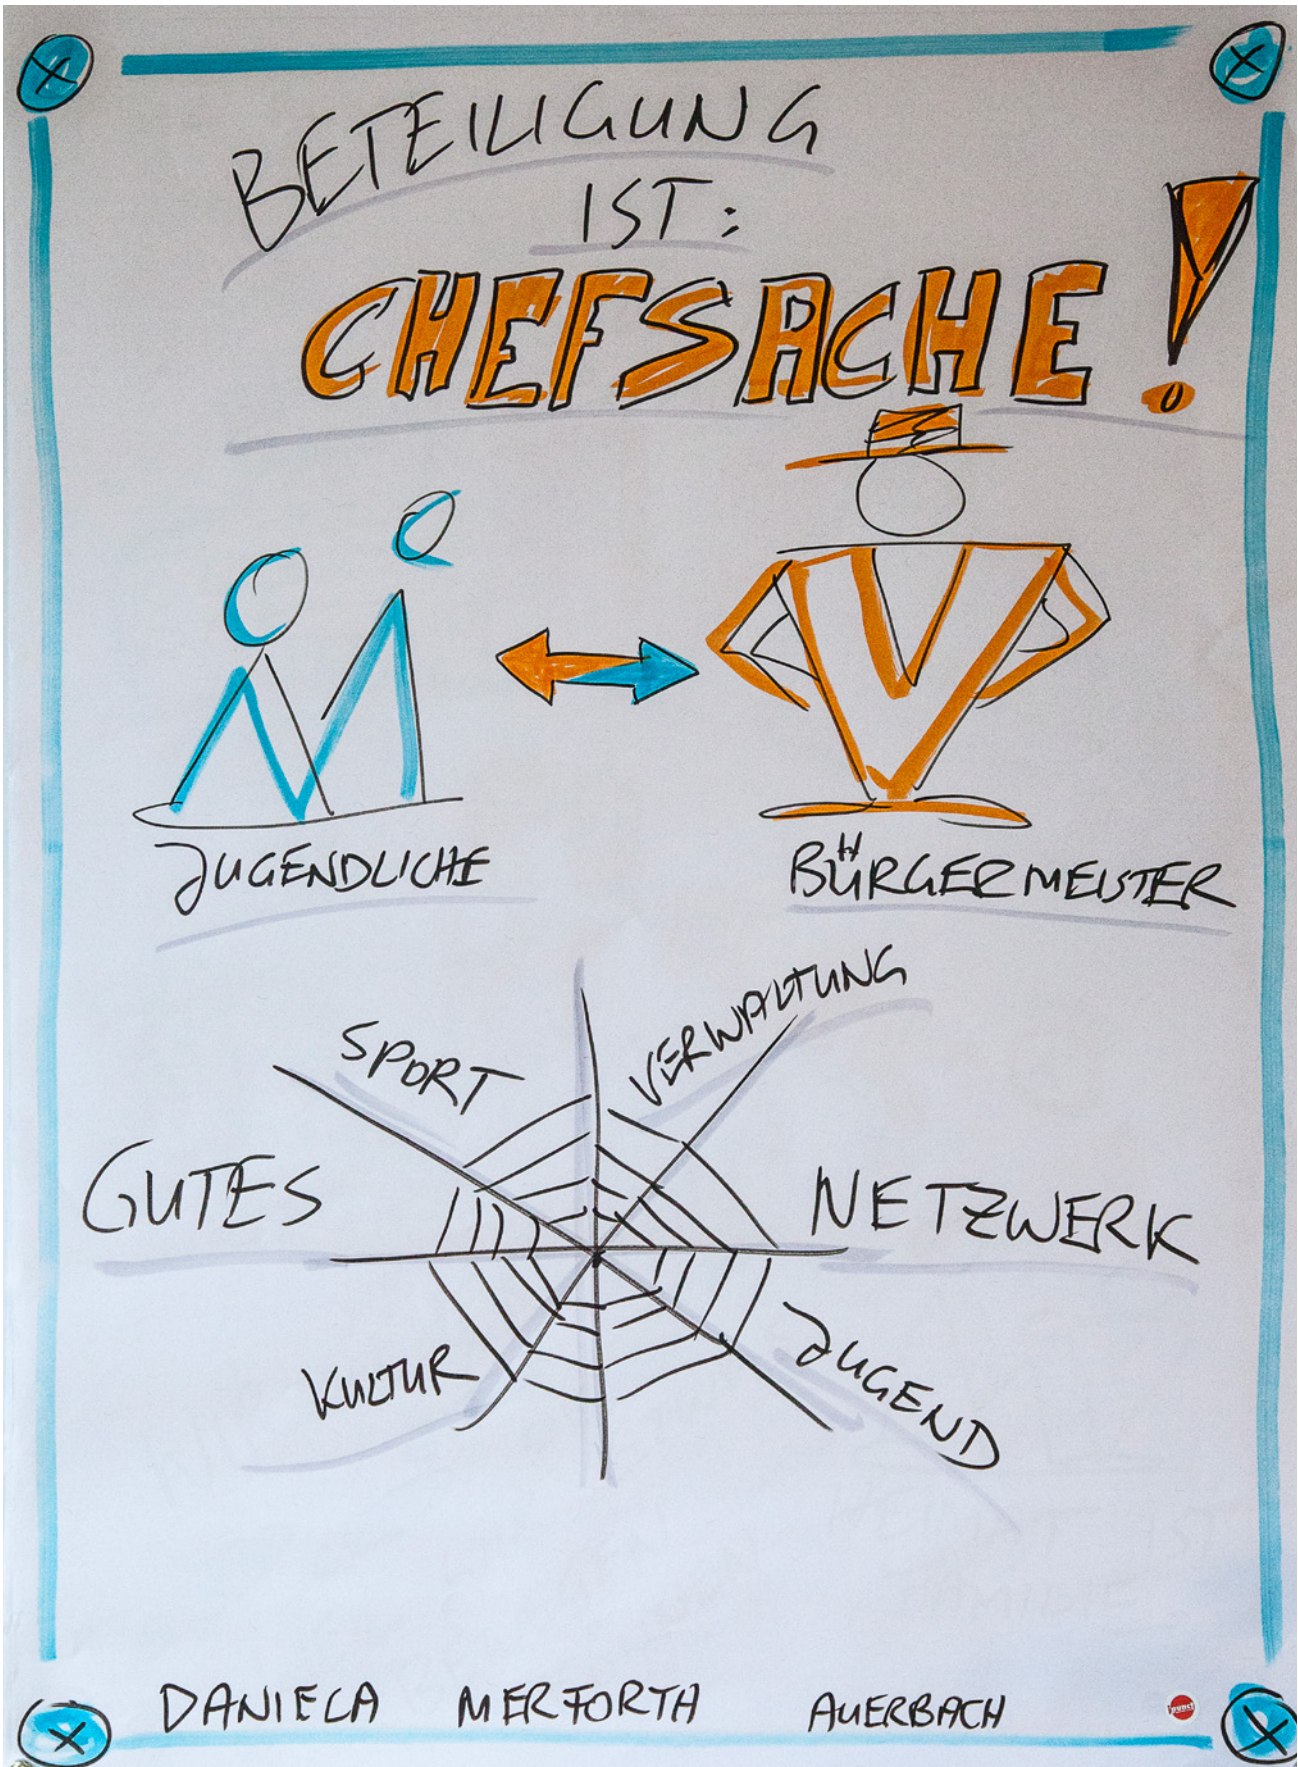 BETEILIGUNG
IST:
CHEFSACHE!
JUGENDLICHE BÜRGERMEISTER
SPORT VERWALTUNG
GUTES NETZWERK
KULTUR JUGEND
DANIELA MERFORTH AUERBACH